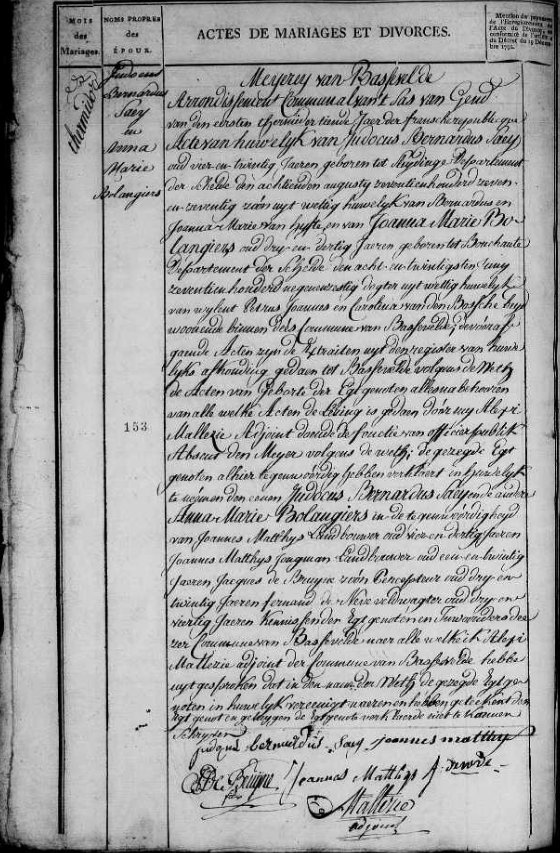 MOIS
des
Mariages.
NOMS PROPRES
des
ÉPOUX.
ACTES DE MARIAGES ET DIVORCES.
thermidor
Judocus
Bernardus
Saey
en
Anna
Marie
Bolangiers
153
Meyerey van Bassevelde
Arrondissement Communal van t Sas van Gend
van den eersten thermidor tiende Jaer der fransche republique
Acte van huwelyk van Judocus Bernardus Saey
oud vier-en-twintig Jaeren geboren tot Kleydinge Departement
der Schelde den achtienden augusty zeventienhonderd zeven-
en-zeventig zoon uyt wettig huwelyk van Bernardus en
Joanna Marie van hyfte, en van Joanna Marie Bo-
langiers oud dry-en-dertig Jaeren geboren tot Bouchaute
Departement der Schelde den acht-en-twintigsten
zeventien honderd negenenzestig dogter uyt wettig huwelyk
van wylent Petrus Joannes en Carolina van den Bossche
woonende binnen dese Commune van Bassevelde, de voorafe
gaende Acten zyn de Extraiten uyt den register van huwe
lyks afkonding gedaen tot Bassevelde volgens de Weth
de Acten van Geborte der Egtgenoten alles nabehooren
van alle welke Acten de Lésing is gedaen door my Alexi
Mallezie Adjoint doende de fonctie van officier publik
Absent den Meyer volgens de weth; de gezegde Egt
genoten alhier tegenwoordig hebben verklaert in huwelyk
te némen den eenen Judocus Bernardus Saey en de andere
Anna Marie Bolangiers in de tegenwoordigheyd
van Joannes Matthys Landbouwer oud vier en dertig Jaeren
Joannes Matthys Jongman Landbouwer oud een-en-twintig
Jaeren Jacques de Bruyne zoon Percepteur oud dry en
twintig Jaeren fernand de Neve veldwagter oud dry en
viertig Jaeren Kennissen den Egtgenoten en Inwoonders de
zer Commune van Bassevelde naer alle welke ik Alexi
Mallezie adjoint der Commune van Bassevelde hebbe
uytgesproken dat in den naem der Weth de gezegde Egtge
noten in huwelyk vereenigt waeren en hebben geteekent den
Egtgenot en getuygen de Egtgenote verklaerde niet te konnen
Schryven
judocus bernardus Saey joannes matthys
Joannes Matthys
Mallezie
adjoint